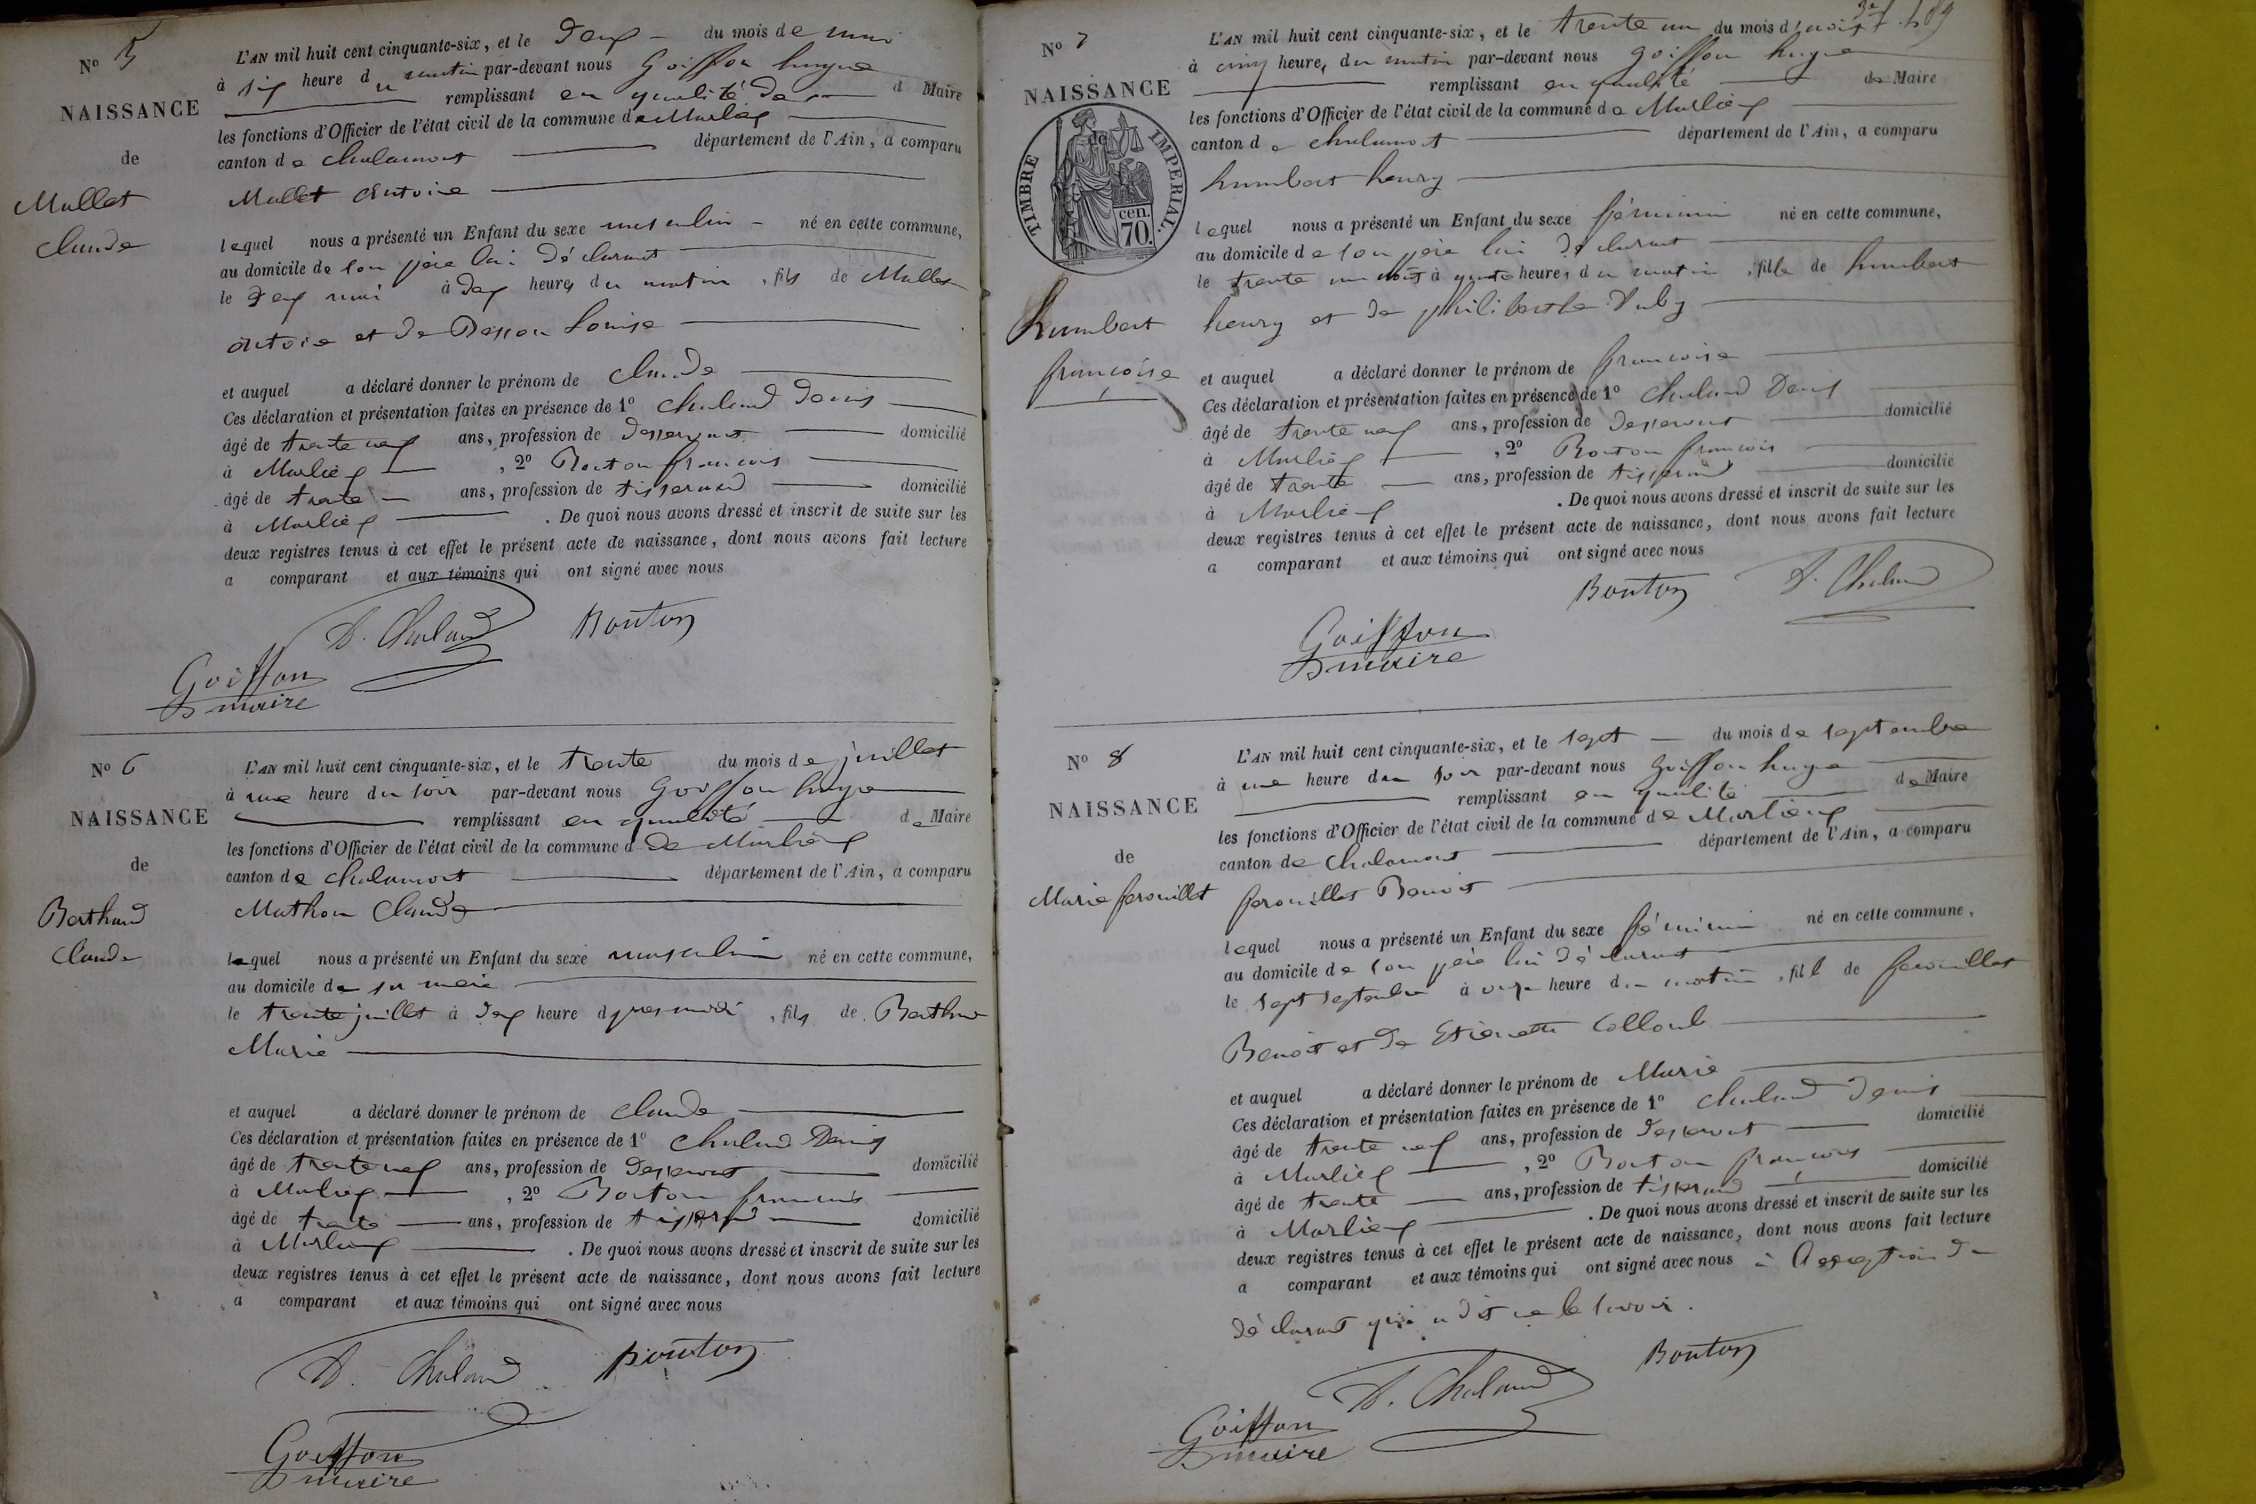 N° 5
NAISSANCE
de
Mallet
Claude
L'AN mil huit cent cinquante-six, et le deux du mois de mai
à six heure du matin par-devant nous Goiffon hugue
remplissant en qualité de Maire
les fonctions d'Officier de l'état civil de la commune de Marlieux
canton de chalamont département de l'Ain, a comparu
Mallet Antoine
lequel nous a présenté un Enfant du sexe masculin né en cette commune,
au domicile de son père lui déclarant
le deux mai à deux heures du matin, fils de Mallet
Antoine et de Louise
et auquel a déclaré donner le prénom de Claude
Ces déclaration et présentation faites en présence de 1° Chaland Denis
âgé de trente neuf ans, profession de desservant domicilié
à Marlieux, 2° Bouton francois
âgé de trente ans, profession de tisserand domicilié
à Marlieux. De quoi nous avons dressé et inscrit de suite sur les
deux registres tenus à cet effet le présent acte de naissance, dont nous avons fait lecture
a comparant et aux témoins qui ont signé avec nous
D. Chaland Bouton
Goiffon
maire
N° 6
NAISSANCE
de
Berthaud
Claude
L'AN mil huit cent cinquante-six, et le trente du mois de juillet
à une heure du soir par-devant nous Goiffon hugue
remplissant en qualité de Maire
les fonctions d'Officier de l'état civil de la commune d de Marlieux
canton de chalamont département de l'Ain, a comparu
Mathon Claude
lequel nous a présenté un Enfant du sexe masculin né en cette commune,
au domicile de sa mère
le trente juillet à deux heure après midi, fils de Berthaud
Marie
et auquel a déclaré donner le prénom de Claude
Ces déclaration et présentation faites en présence de 1° Chaland Denis
âgé de trente neuf ans, profession de desservant domicilié
à Marlieux, 2° Bouton francois
âgé de trente ans, profession de tisserand domicilié
à Marlieux. De quoi nous avons dressé et inscrit de suite sur les
deux registres tenus à cet effet le présent acte de naissance, dont nous avons fait lecture
a comparant et aux témoins qui ont signé avec nous
D. Chaland Bouton
Goiffon
maire
N° 7
NAISSANCE
de
TIMBRE IMPERIAL.
cen.
70.
humbert
francoise
L'AN mil huit cent cinquante-six, et le trente un du mois d'août
à cinq heures du matin par-devant nous Goiffon hugue
remplissant en qualité de Maire
les fonctions d'Officier de l'état civil de la commune de Marlieux
canton de chalamont département de l'Ain, a comparu
humbert henry
lequel nous a présenté un Enfant du sexe féminin né en cette commune,
au domicile de son père lui déclarant
le trente un août à quatre heures du matin, fille de humbert
henry et de philiberte
et auquel a déclaré donner le prénom de francoise
Ces déclaration et présentation faites en présence de 1° Chaland Denis
âgé de trente neuf ans, profession de desservant domicilié
à Marlieux, 2° Bouton francois
âgé de trente ans, profession de tisserand domicilié
à Marlieux. De quoi nous avons dressé et inscrit de suite sur les
deux registres tenus à cet effet le présent acte de naissance, dont nous avons fait lecture
a comparant et aux témoins qui ont signé avec nous
Bouton D. Chaland
Goiffon
maire
N° 8
NAISSANCE
de
Marie ferouillet
L'AN mil huit cent cinquante-six, et le sept du mois de septembre
à une heure du soir par-devant nous Goiffon hugue
remplissant en qualité de Maire
les fonctions d'Officier de l'état civil de la commune de Marlieux
canton de Chalamont département de l'Ain, a comparu
ferouillet Benoit
lequel nous a présenté un Enfant du sexe féminin né en cette commune,
au domicile de son père lui déclarant
le sept septembre à onze heure du matin, fill de ferouillet
Benoit et de Etiennette Colloub
et auquel a déclaré donner le prénom de Marie
Ces déclaration et présentation faites en présence de 1° Chaland Denis
âgé de trente neuf ans, profession de desservant domicilié
à Marlieux, 2° Bouton francois
âgé de trente ans, profession de tisserand domicilié
à Marlieux. De quoi nous avons dressé et inscrit de suite sur les
deux registres tenus à cet effet le présent acte de naissance, dont nous avons fait lecture
a comparant et aux témoins qui ont signé avec nous à l'exception du
déclarant qui a dit ne le savoir.
D. Chaland Bouton
Goiffon
maire